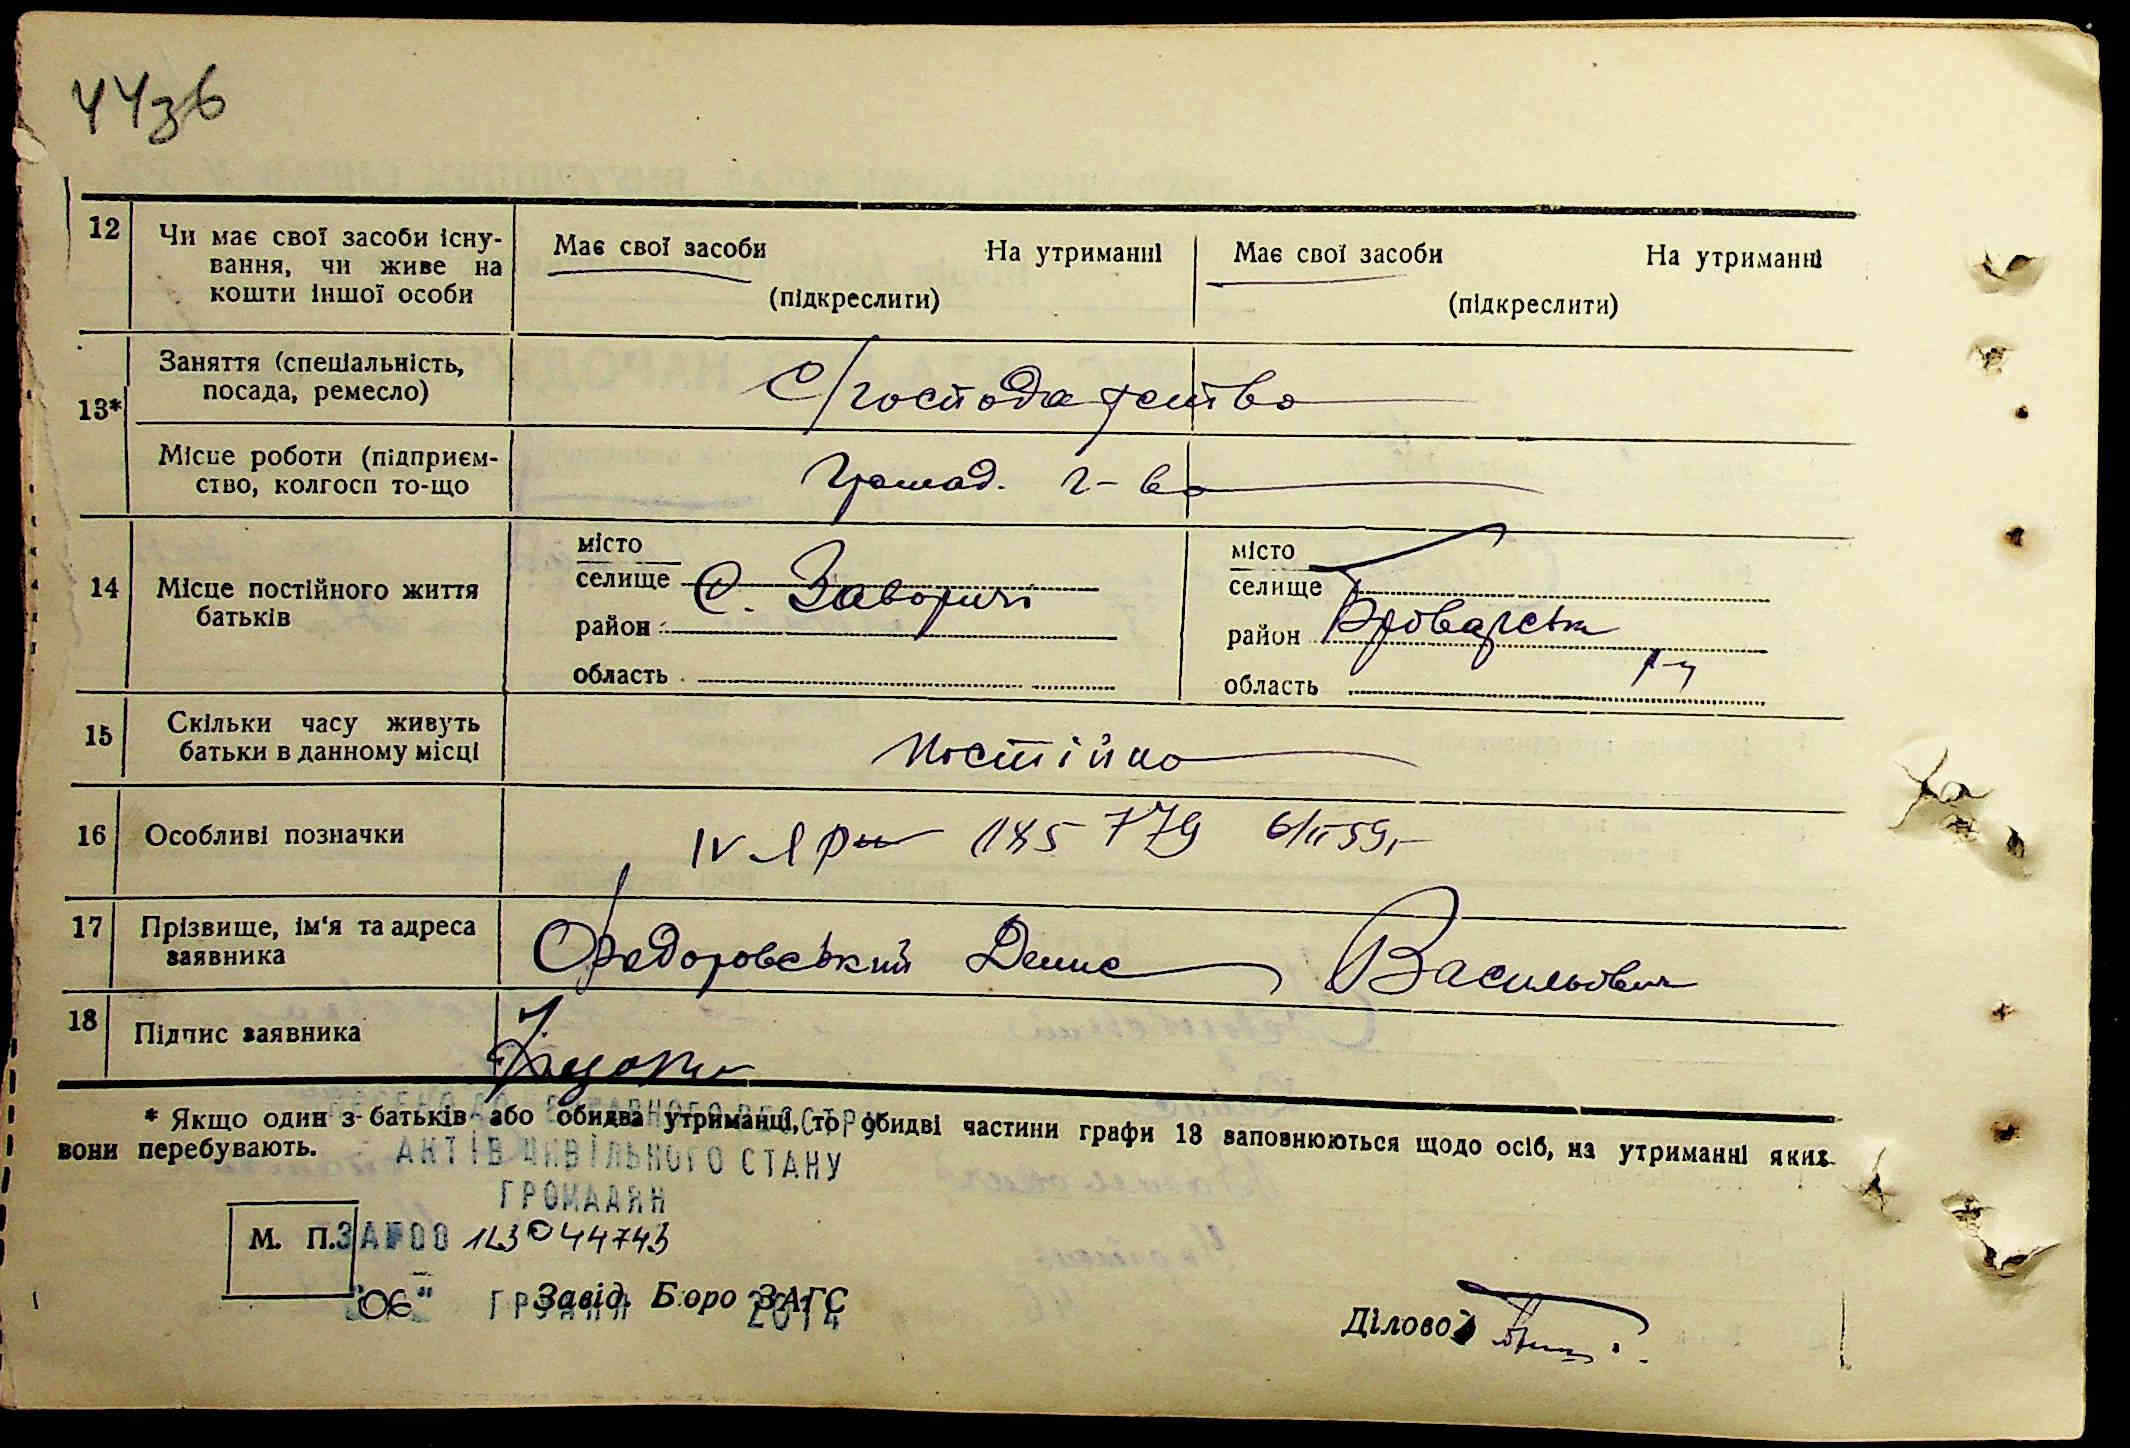 44зв
12 Чи має свої засоби існу-
вання, чи живе на
кошти іншої особи
Має свої засоби На утриманні
(підкреслити)
Має свої засоби На утриманні
(підкреслити)
13* Заняття (спеціальність,
посада, ремесло)
С/господарство
Місце роботи (підприєм-
ство, колгосп то-що
Громад. г-во
14 Місце постійного життя
батьків
місто
селище С. Заворичі
район
область
місто
селище
район Броварськ
р-н
область
15 Скільки часу живуть
батьки в данному місці
Постійно
16 Особливі позначки
IV 185 779 6/II 59
17 Прізвище, ім'я та адреса
заявника
Федоровський Денис Васильович
18 Підпис заявника
* Якщо один з батьків або обидва утриманці, то обидві частини графи 13 заповнюються щодо осіб, на утриманні яких
вони перебувають.
ДО ДЕРЖАВНОГО РЕЄСТРУ
АКТІВ ЦИВІЛЬНОГО СТАНУ
ГРОМАДЯН
М. П. ЗА №00 123044743
"06" ГРУДНЯ 2014
Завід. Бюро ЗАГС
Діловод